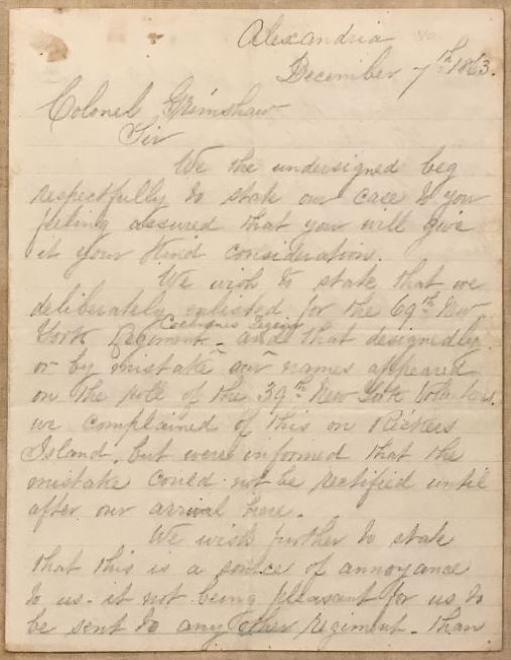 Alexandria
December 7th 1863.
Colonel Grimshaw
Sir
We the undersigned beg
respectfully to state our case to you
feeling assured that you will give
it your kind consideration.
We wish to state that we
deliberately enlisted for the 69th New
York Regiment - and that designedly
or by mistake our names appeared
on the roll of the 39th New York Volunteers.
we complained of this on Rickers
Island, but were informed that the
mistake could not be rectified until
after our arrival here.
We wish further to state
that this is a source of annoyance
to us - it not being pleasant for us to
be sent to any other regiment - than